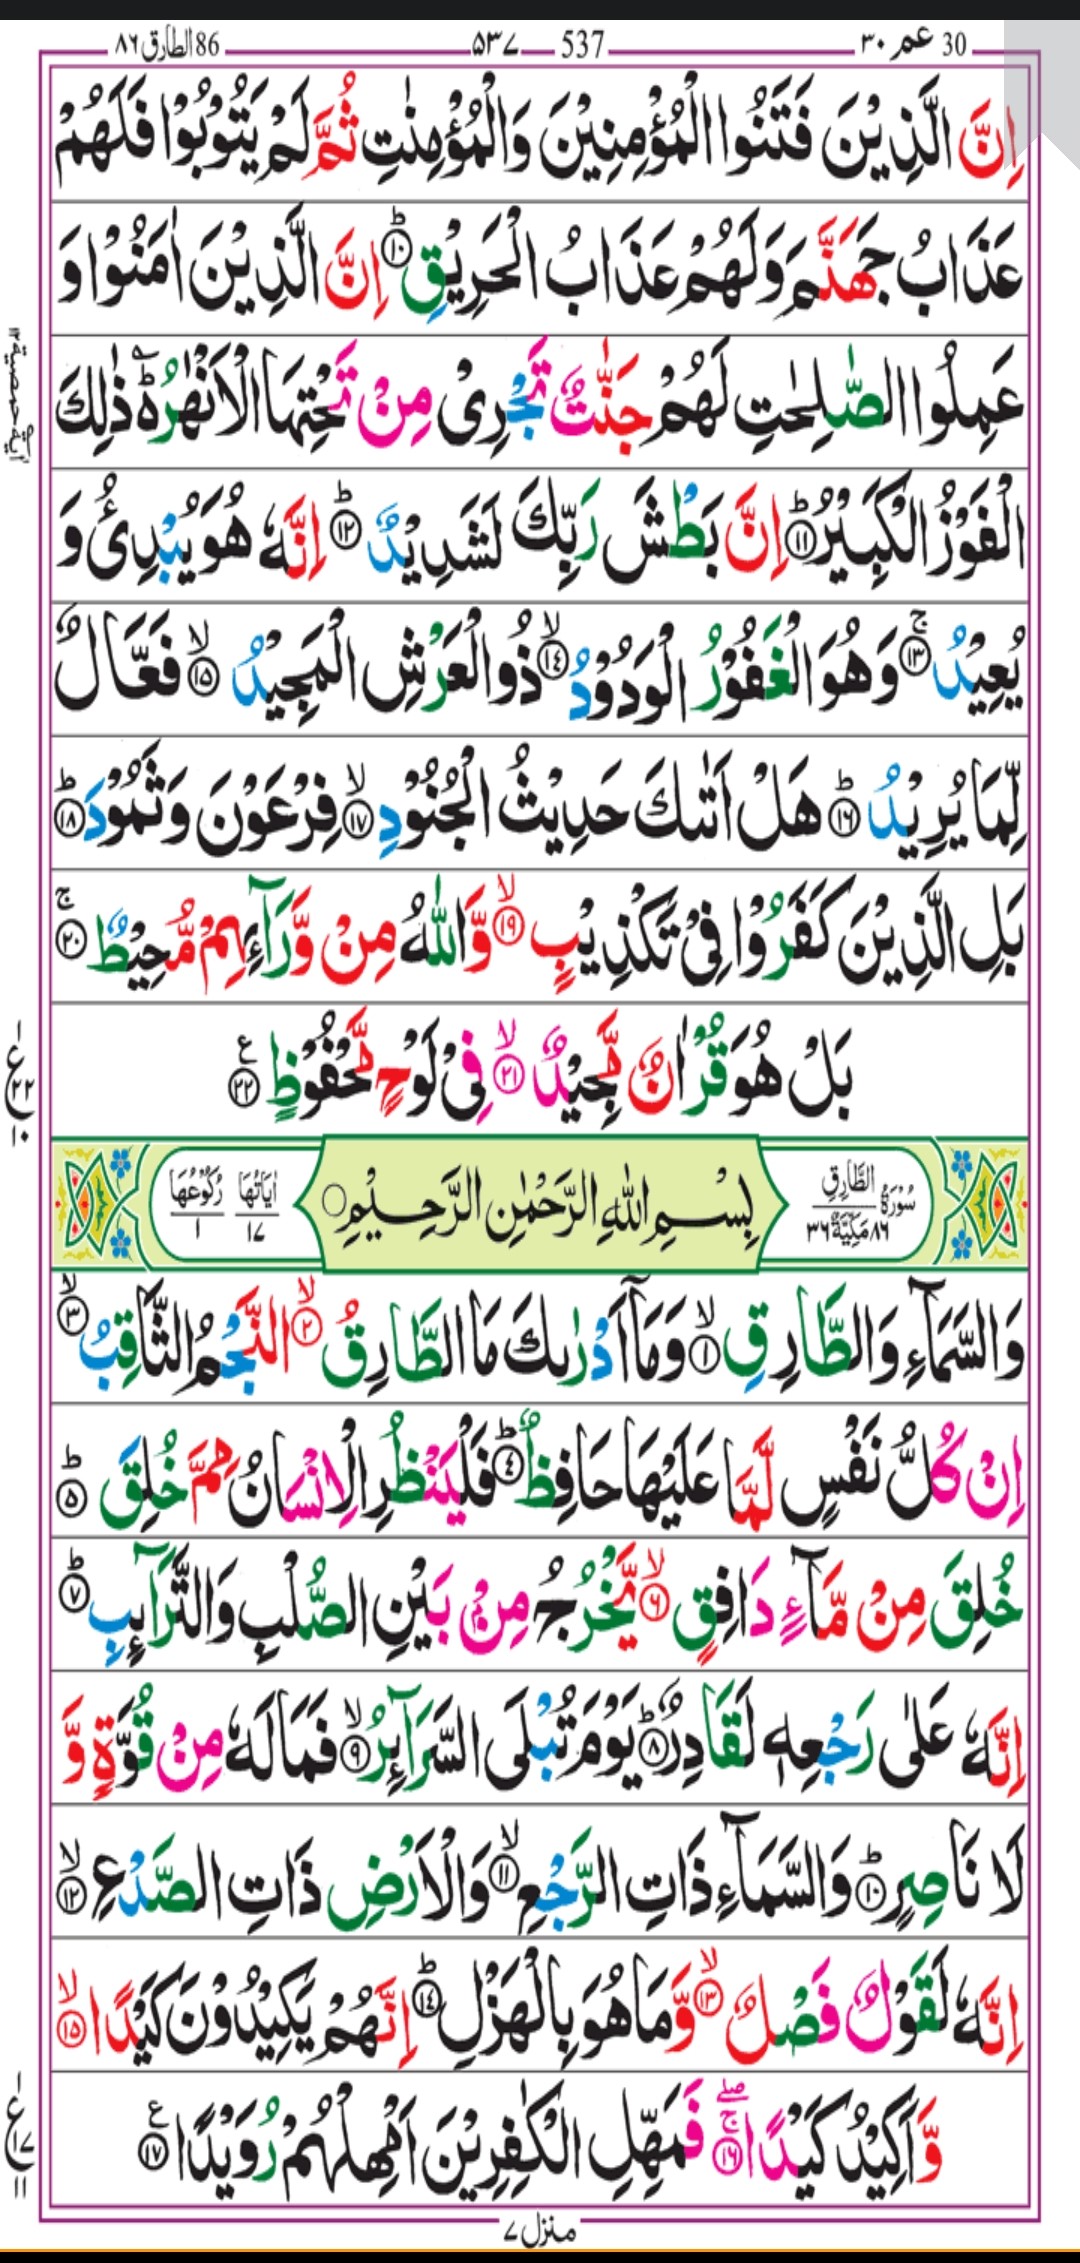 30 عم ۳۰
537 ۵۳۷
86 الطارق ۸۶
اِنَّ الَّذِيْنَ فَتَنُوا الْمُؤْمِنِيْنَ وَالْمُؤْمِنٰتِ ثُمَّ لَمْ يَتُوْبُوْا فَلَهُمْ
عَذَابُ جَهَنَّمَ وَلَهُمْ عَذَابُ الْحَرِيْقِ ؕ‏﴿۱۰﴾ اِنَّ الَّذِيْنَ اٰمَنُوْا وَ
عَمِلُوا الصّٰلِحٰتِ لَهُمْ جَنّٰتٌ تَجْرِىْ مِنْ تَحْتِهَا الْاَنْهٰرُ ؕ۬ ذٰلِكَ
الْفَوْزُ الْكَبِيْرُ ؕ‏﴿۱۱﴾ اِنَّ بَطْشَ رَبِّكَ لَشَدِيْدٌ ؕ‏﴿۱۲﴾ اِنَّهٗ هُوَ يُبْدِئُ وَ
يُعِيْدُ ۚ‏﴿۱۳﴾ وَهُوَ الْغَفُوْرُ الْوَدُوْدُ ۙ‏﴿۱۴﴾ ذُو الْعَرْشِ الْمَجِيْدُ ۙ‏﴿۱۵﴾ فَعَّالٌ
لِّمَا يُرِيْدُ ؕ‏﴿۱۶﴾ هَلْ اَتٰٮكَ حَدِيْثُ الْجُنُوْدِ ۙ‏﴿۱۷﴾ فِرْعَوْنَ وَثَمُوْدَ ؕ‏﴿۱۸﴾
بَلِ الَّذِيْنَ كَفَرُوْا فِىْ تَكْذِيْبٍ ۙ‏﴿۱۹﴾ وَّاللّٰهُ مِنْ وَّرَآٮِٕهِمْ مُّحِيْطٌ ۚ‏﴿۲۰﴾
بَلْ هُوَ قُرْاٰنٌ مَّجِيْدٌ ۙ‏﴿۲۱﴾ فِىْ لَوْحٍ مَّحْفُوْظٍ ﴿۲۲﴾ ع
سُوْرَةُ الطَّارِقِ ۸۶ مَكِّيَّةٌ ۳۶
بِسْمِ اللّٰهِ الرَّحْمٰنِ الرَّحِيْمِ
اٰيَاتُهَا ۱۷ رُكُوْعُهَا ۱
وَالسَّمَآءِ وَالطَّارِقِ ۙ‏﴿۱﴾ وَمَاۤ اَدْرٰٮكَ مَا الطَّارِقُ ۙ‏﴿۲﴾ النَّجْمُ الثَّاقِبُ ۙ‏﴿۳﴾
اِنْ كُلُّ نَفْسٍ لَّمَّا عَلَيْهَا حَافِظٌ ؕ‏﴿۴﴾ فَلْيَنْظُرِ الْاِنْسَانُ مِمَّ خُلِقَ ؕ‏﴿۵﴾
خُلِقَ مِنْ مَّآءٍ دَافِقٍ ۙ‏﴿۶﴾ يَّخْرُجُ مِنْۢ بَيْنِ الصُّلْبِ وَالتَّرَآٮِٕبِ ؕ‏﴿۷﴾
اِنَّهٗ عَلٰى رَجْعِهٖ لَقَادِرٌ ؕ‏﴿۸﴾ يَوْمَ تُبْلَى السَّرَآٮِٕرُ ۙ‏﴿۹﴾ فَمَا لَهٗ مِنْ قُوَّةٍ وَّ
لَا نَاصِرٍ ؕ‏﴿۱۰﴾ وَالسَّمَآءِ ذَاتِ الرَّجْعِ ۙ‏﴿۱۱﴾ وَالْاَرْضِ ذَاتِ الصَّدْعِ ۙ‏﴿۱۲﴾
اِنَّهٗ لَقَوْلٌ فَصْلٌ ۙ‏﴿۱۳﴾ وَّمَا هُوَ بِالْهَزْلِ ؕ‏﴿۱۴﴾ اِنَّهُمْ يَكِيْدُوْنَ كَيْدًا ۙ‏﴿۱۵﴾
وَّاَكِيْدُ كَيْدًا ۖۚ‏﴿۱۶﴾ فَمَهِّلِ الْكٰفِرِيْنَ اَمْهِلْهُمْ رُوَيْدًا ﴿۱۷﴾ ع
ع ۲۲ ۱۰
ع ۱۷ ۱۱
منزل ۷